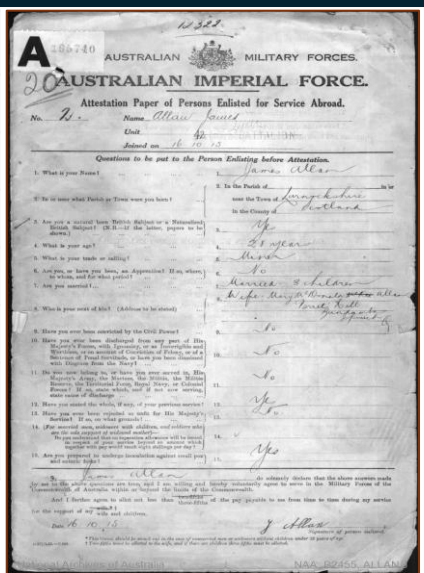 12322
A
205740
20
AUSTRALIAN MILITARY FORCES.
AUSTRALIAN IMPERIAL FORCE.
Attestation Paper of Persons Enlisted for Service Abroad.
No. Name Allan James
Unit 42
Joined on 16 10 15
Questions to be put to the Person Enlisting before Attestation.
1. What is your Name? ... 1. James Allan
2. In or near what Parish or Town were you born? ... 2. In the Parish of in or
near the Town of
in the County of Scotland
3. Are you a natural born British Subject or a Naturalized
British Subject? (N.B.—If the latter, papers to be
shown.) 3. Yes
4. What is your age? ... 4. 28 years
5. What is your trade or calling? ... 5. Miner
6. Are you, or have you been, an Apprentice? If so, where,
to whom, and for what period? 6. No
7. Are you married? ... 7. Married children
8. Who is your next of kin? (Address to be stated) 8. Wife Mary Allan
9. Have you ever been convicted by the Civil Power? 9. No
10. Have you ever been discharged from any part of His
Majesty's Forces, with Ignominy, or as Incorrigible and
Worthless, or on account of Conviction of Felony, or of a
Sentence of Penal Servitude, or have you been dismissed
with Disgrace from the Navy? ... 10. No
11. Do you now belong to, or have you ever served in, His
Majesty's Army, the Marines, the Militia, the Militia
Reserve, the Territorial Force, Royal Navy, or Colonial
Forces? If so, state which, and if not now serving,
state cause of discharge 11. No
12. Have you stated the whole, if any, of your previous service? 12. Yes
13. Have you ever been rejected as unfit for His Majesty's
Service? If so, on what grounds? 13. No
14. (For married men, widowers with children, and soldiers who
are the sole support of widowed mother)—
Do you understand that no separation allowance will be issued
in respect of your service beyond an amount which
together with pay would reach eight shillings per day? 14.
15. Are you prepared to undergo inoculation against small pox
and enteric fever? 15. Yes
I, James Allan do solemnly declare that the above answers made
by me to the above questions are true, and I am willing and hereby voluntarily agree to serve in the Military Forces of the
Commonwealth of Australia within or beyond the limits of the Commonwealth.
And I further agree to allot not less than two-fifths three-fifths of the pay payable to me from time to time during my service
for the support of my wife wife and children.
Date 16 10 15 J Allan
Signature of person enlisted.
National Archives of Australia NAA: B2455, ALLAN J